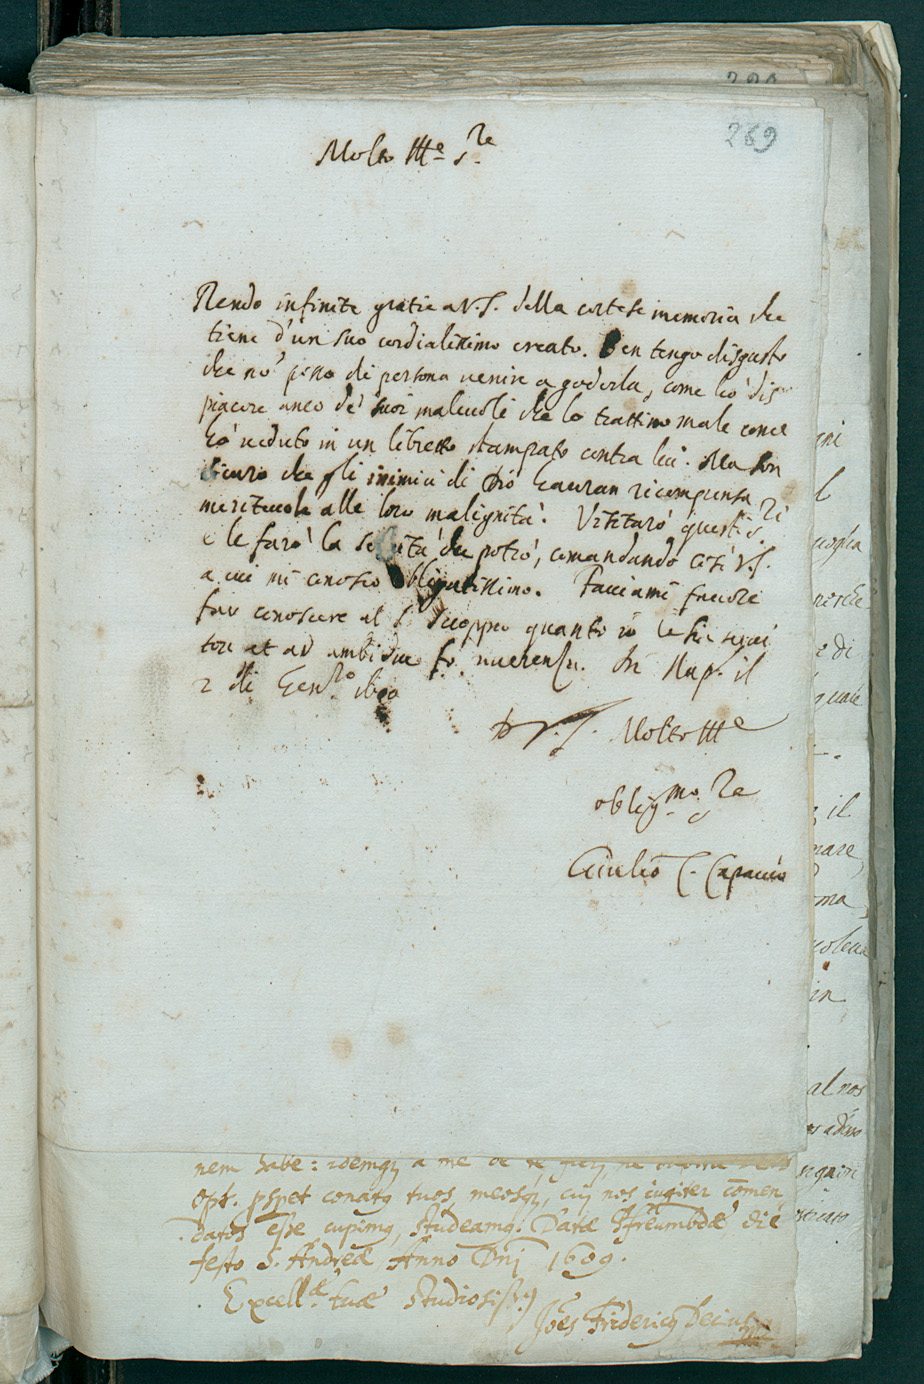 289
269
Molto Ill.e S.re
Rendo infinite gratie a V.S. della cortese memoria che
tiene d'un suo cordialissimo creato. Ben tengo disgusto
che nō posso di persona uenire a goderla, come hò dis
piacere anco de' suoi maleuoli che lo trattino male come
hò ueduto in un libretto stampato contra lei. Ma son
sicuro che gli inimici di Dio hauran ricompensa
meriteuole alle loro malignità. Visitarò questi S.ri
e le farò la seruitù che potrò, comandando così V.S.
a cui mi conosco obligatissimo. Facciami fauore
far conoscere al S. Scioppio quanto io le sia serui
tore et ad ambidue fo riuerenza. In Nap. il
2 di Gen.ro 1610
D V.S. Molto Ill.e
oblig.mo S.re
Giulio C. Capaccio
nem habe: idemq; a me de te
Opt. pspet conatq tuos, meosq;, cui nos iugiter cōmen
datos esse cupimq, studeamq. Datæ die
festo S. Andreæ Anno Dnj 1609.
Excell.æ tuæ Studiosiss.q
Joēs Fridericq Decius
uoglia
e di
il
mare
in
al nos